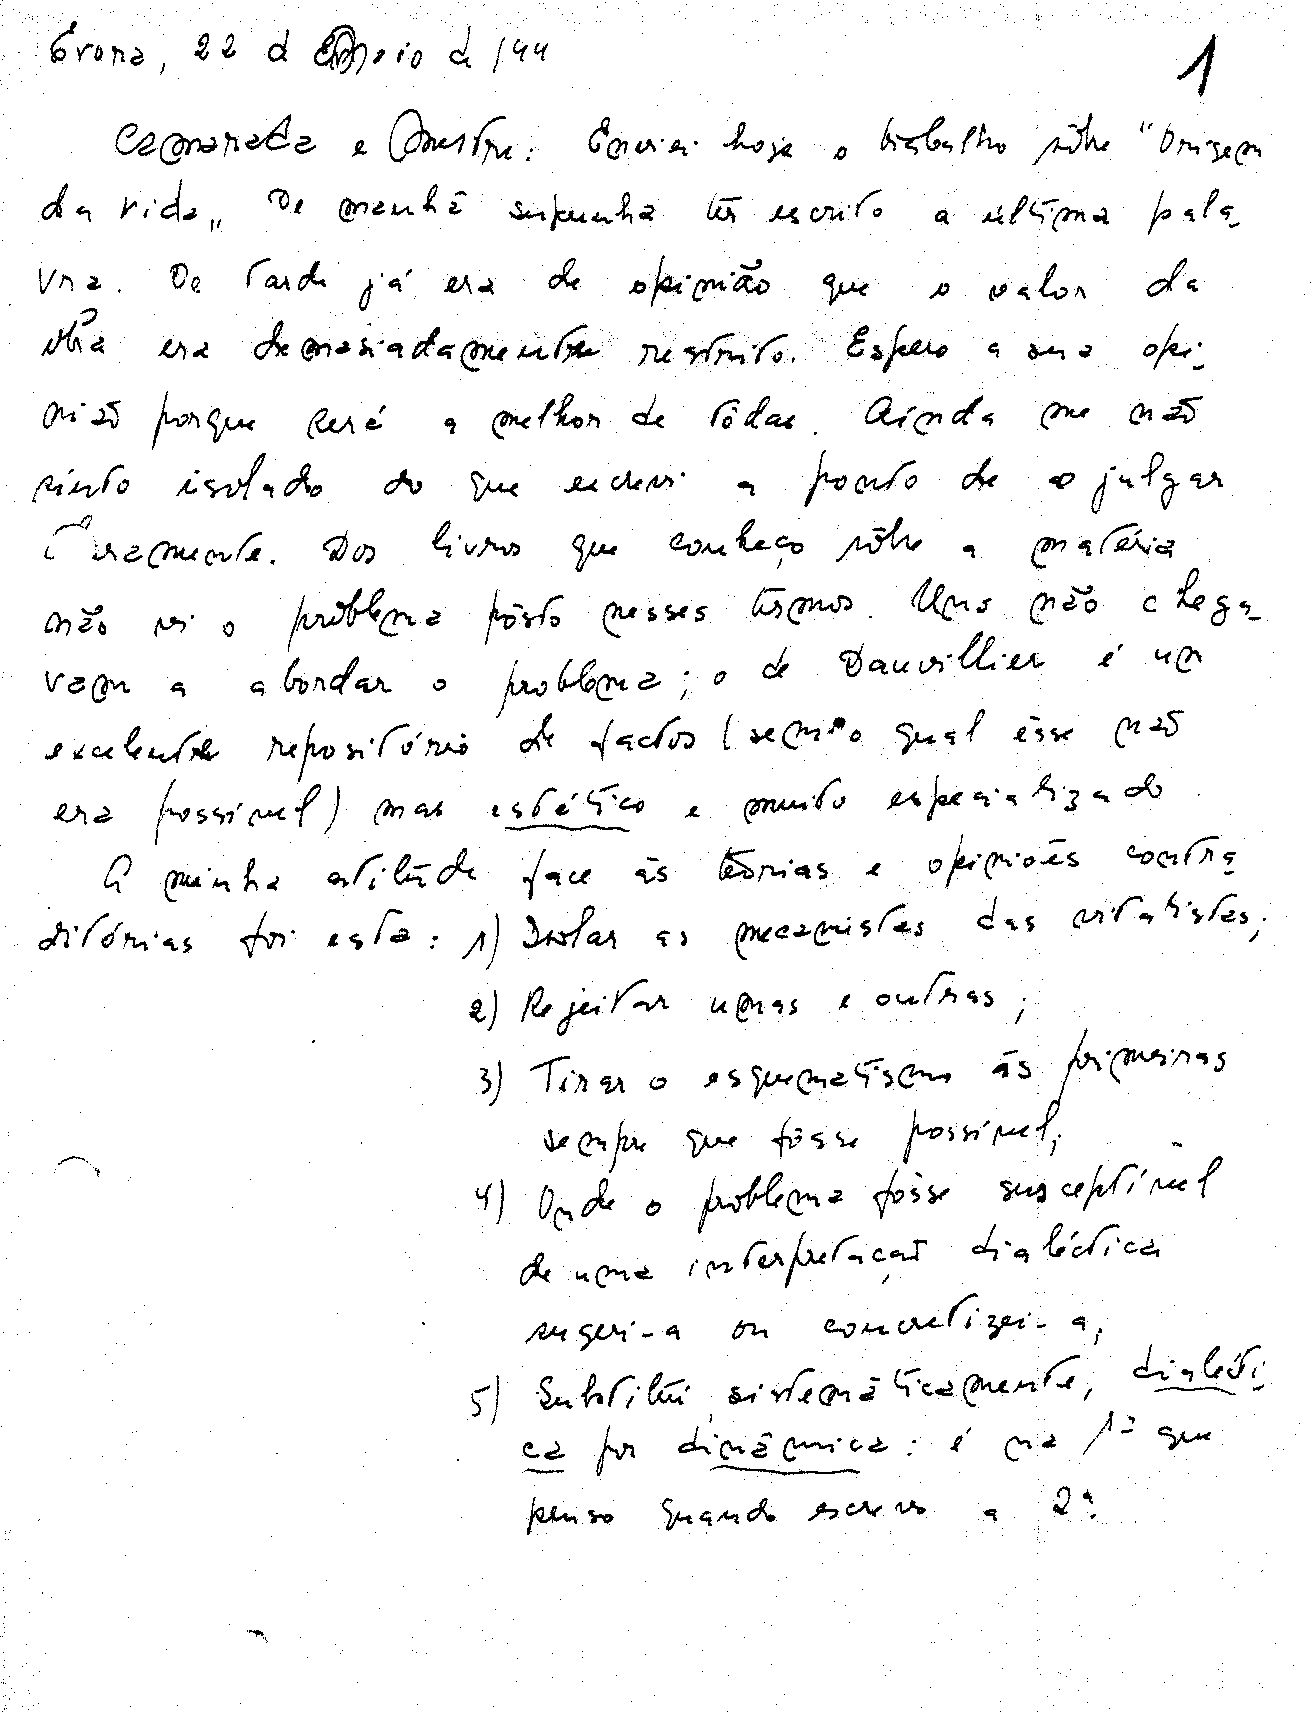 Évora, 22 d Maio d 944
1
Camarada e Mestre: Enviei hoje o trabalho sôbre "Origem
da vida„ De manhã supunha ter escrito a última pala-
vra. De tarde já era de opinião que o valor da
obra era demasiadamente restrito. Espero a sua opi-
nião porque será a melhor de tôdas. Ainda me não
sinto isolado do que escrevi a ponto de o julgar
claramente. Dos livros que conheço sôbre a matéria
não vi o problema pôsto nesses têrmos. Uns não chega-
vam a abordar o problema; o de Dauvillier é um
excelente repositório de factos (sem o qual êsse não
era possível) mas estático e muito especializado.
A minha atitude face às teorias e opiniões contra
ditórias foi esta: 1) Isolar as mecanistas das vitalistas;
2) Rejeitar umas e outras;
3) Tirar o esquematismo às primeiras
sempre que fôsse possível;
4) Onde o problema fôsse susceptível
de uma interpretação dialéctica
sugeri-a ou concretizei-a;
5) Substituí, sistemàticamente, dialécti-
ca por dinâmica: é na 1ª que
penso quando escrevo a 2ª.